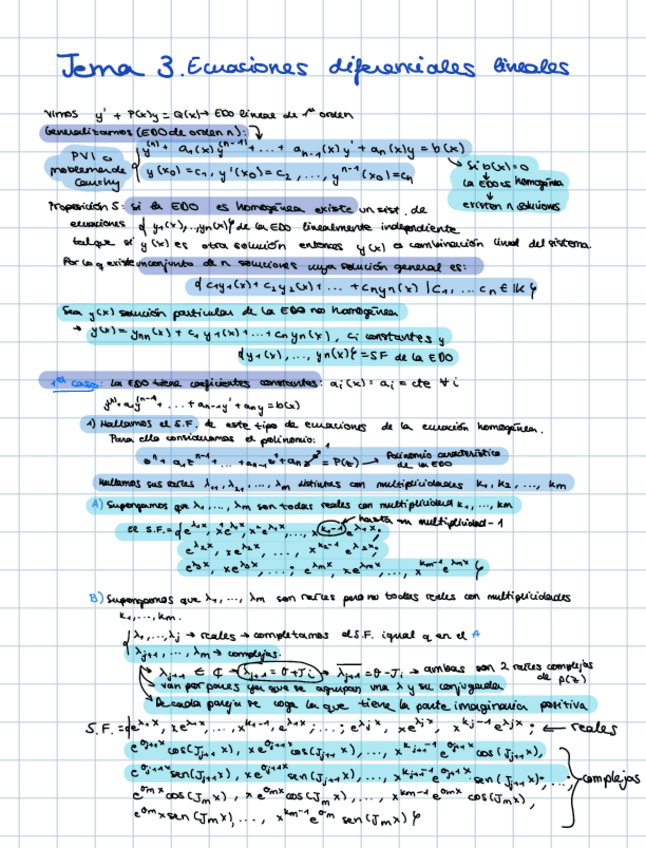 Tema 3. Ecuaciones diferenciales lineales
Vimos y' + P(x)y = Q(x) → EDO lineal de 1er orden
Generalizamos (EDO de orden n):
PVI o problema de Cauchy
{ y⁽ⁿ⁾ + a₁(x) y⁽ⁿ⁻¹⁾ + ... + aₙ₋₁(x) y' + aₙ(x)y = b(x)
y(x₀) = c₁, y'(x₀) = c₂, ..., yⁿ⁻¹(x₀) = cₙ
→ Si b(x) = 0
↓
la EDO es homogénea
↓
existen n soluciones
Proposición 5: si la EDO es homogénea existe un sist. de
ecuaciones {y₁(x), ..., yₙ(x)} de la EDO linealmente independiente
tal que si y(x) es otra solución entonces y(x) es combinación lineal del sistema.
Por lo q existe un conjunto de n soluciones cuya solución general es:
{c₁y₁(x) + c₂y₂(x) + ... + cₙyₙ(x) | c₁, ... cₙ ∈ IK}
Sea y(x) solución particular de la EDO no homogénea
→ y(x) = yₙₙ(x) + c₁y₁(x) + ... + cₙyₙ(x), cᵢ constantes y
{y₁(x), ..., yₙ(x)} = SF de la EDO
1er caso: la EDO tiene coeficientes constantes: aᵢ(x) = aᵢ = cte ∀ i
y⁽ⁿ⁾ + a₁y⁽ⁿ⁻¹⁾ + ... + aₙ₋₁y' + aₙy = b(x)
1) Hallamos el S.F. de este tipo de ecuaciones de la ecuación homogénea.
Para ello consideramos el polinomio:
= P(z) → Polinomio característico
de la EDO
Hallamos sus raíces λ₁, λ₂, ..., λm distintas con multiplicidades k₁, k₂, ..., km
A) Supongamos que λ₁, ..., λm son todas reales con multiplicidad k₁, ..., km
hasta su multiplicidad-1
El S.F. = {e^λ₁x, xe^λ₁x, x²e^λ₁x, ..., x^(k₁-1) e^λ₁x;
e^λ₂x, xe^λ₂x, ..., x^(k₂-1) e^λ₂x;
xe^λmx, ..., x^(km-1) e^λmx}
B) Supongamos que λ₁, ..., λm son raíces pero no todas reales con multiplicidades
k₁, ..., km.
{ λ₁, ..., λj → reales → completamos el S.F. igual q en el A
λj+1, ..., λm → complejas.
→ λj+1 ∈ ₵ → λj+1 = σ+Ji → λ̅j+1 = σ-Ji → ambas son 2 raíces complejas
de p(z)
→ van por pares ya que se agrupan una λ y su conjugada
→ De cada pareja se coge la que tiene la parte imaginaria positiva
S.F. = {e^λ₁x, xe^λ₁x, ..., x^(k₁-1) e^λ₁x; ...; e^λjx, xe^λjx, x^(kj-1) e^λjx; ← reales
e^σj+1x cos(Jj+1 x), xe^σj+1x cos(Jj+1 x), ..., x^(kj+1-1) e^σj+1x cos(Jj+1 x),
e^σj+1x sen(Jj+1 x), xe^σj+1x sen(Jj+1 x), ..., x^(kj+1-1) e^σj+1x sen(Jj+1 x); ...;
complejas
e^σmx cos(Jm x), x e^σmx cos(Jm x), ..., x^(km-1) e^σmx cos(Jm x),
e^σmx sen(Jm x), ..., x^(km-1) e^σm sen(Jm x)}